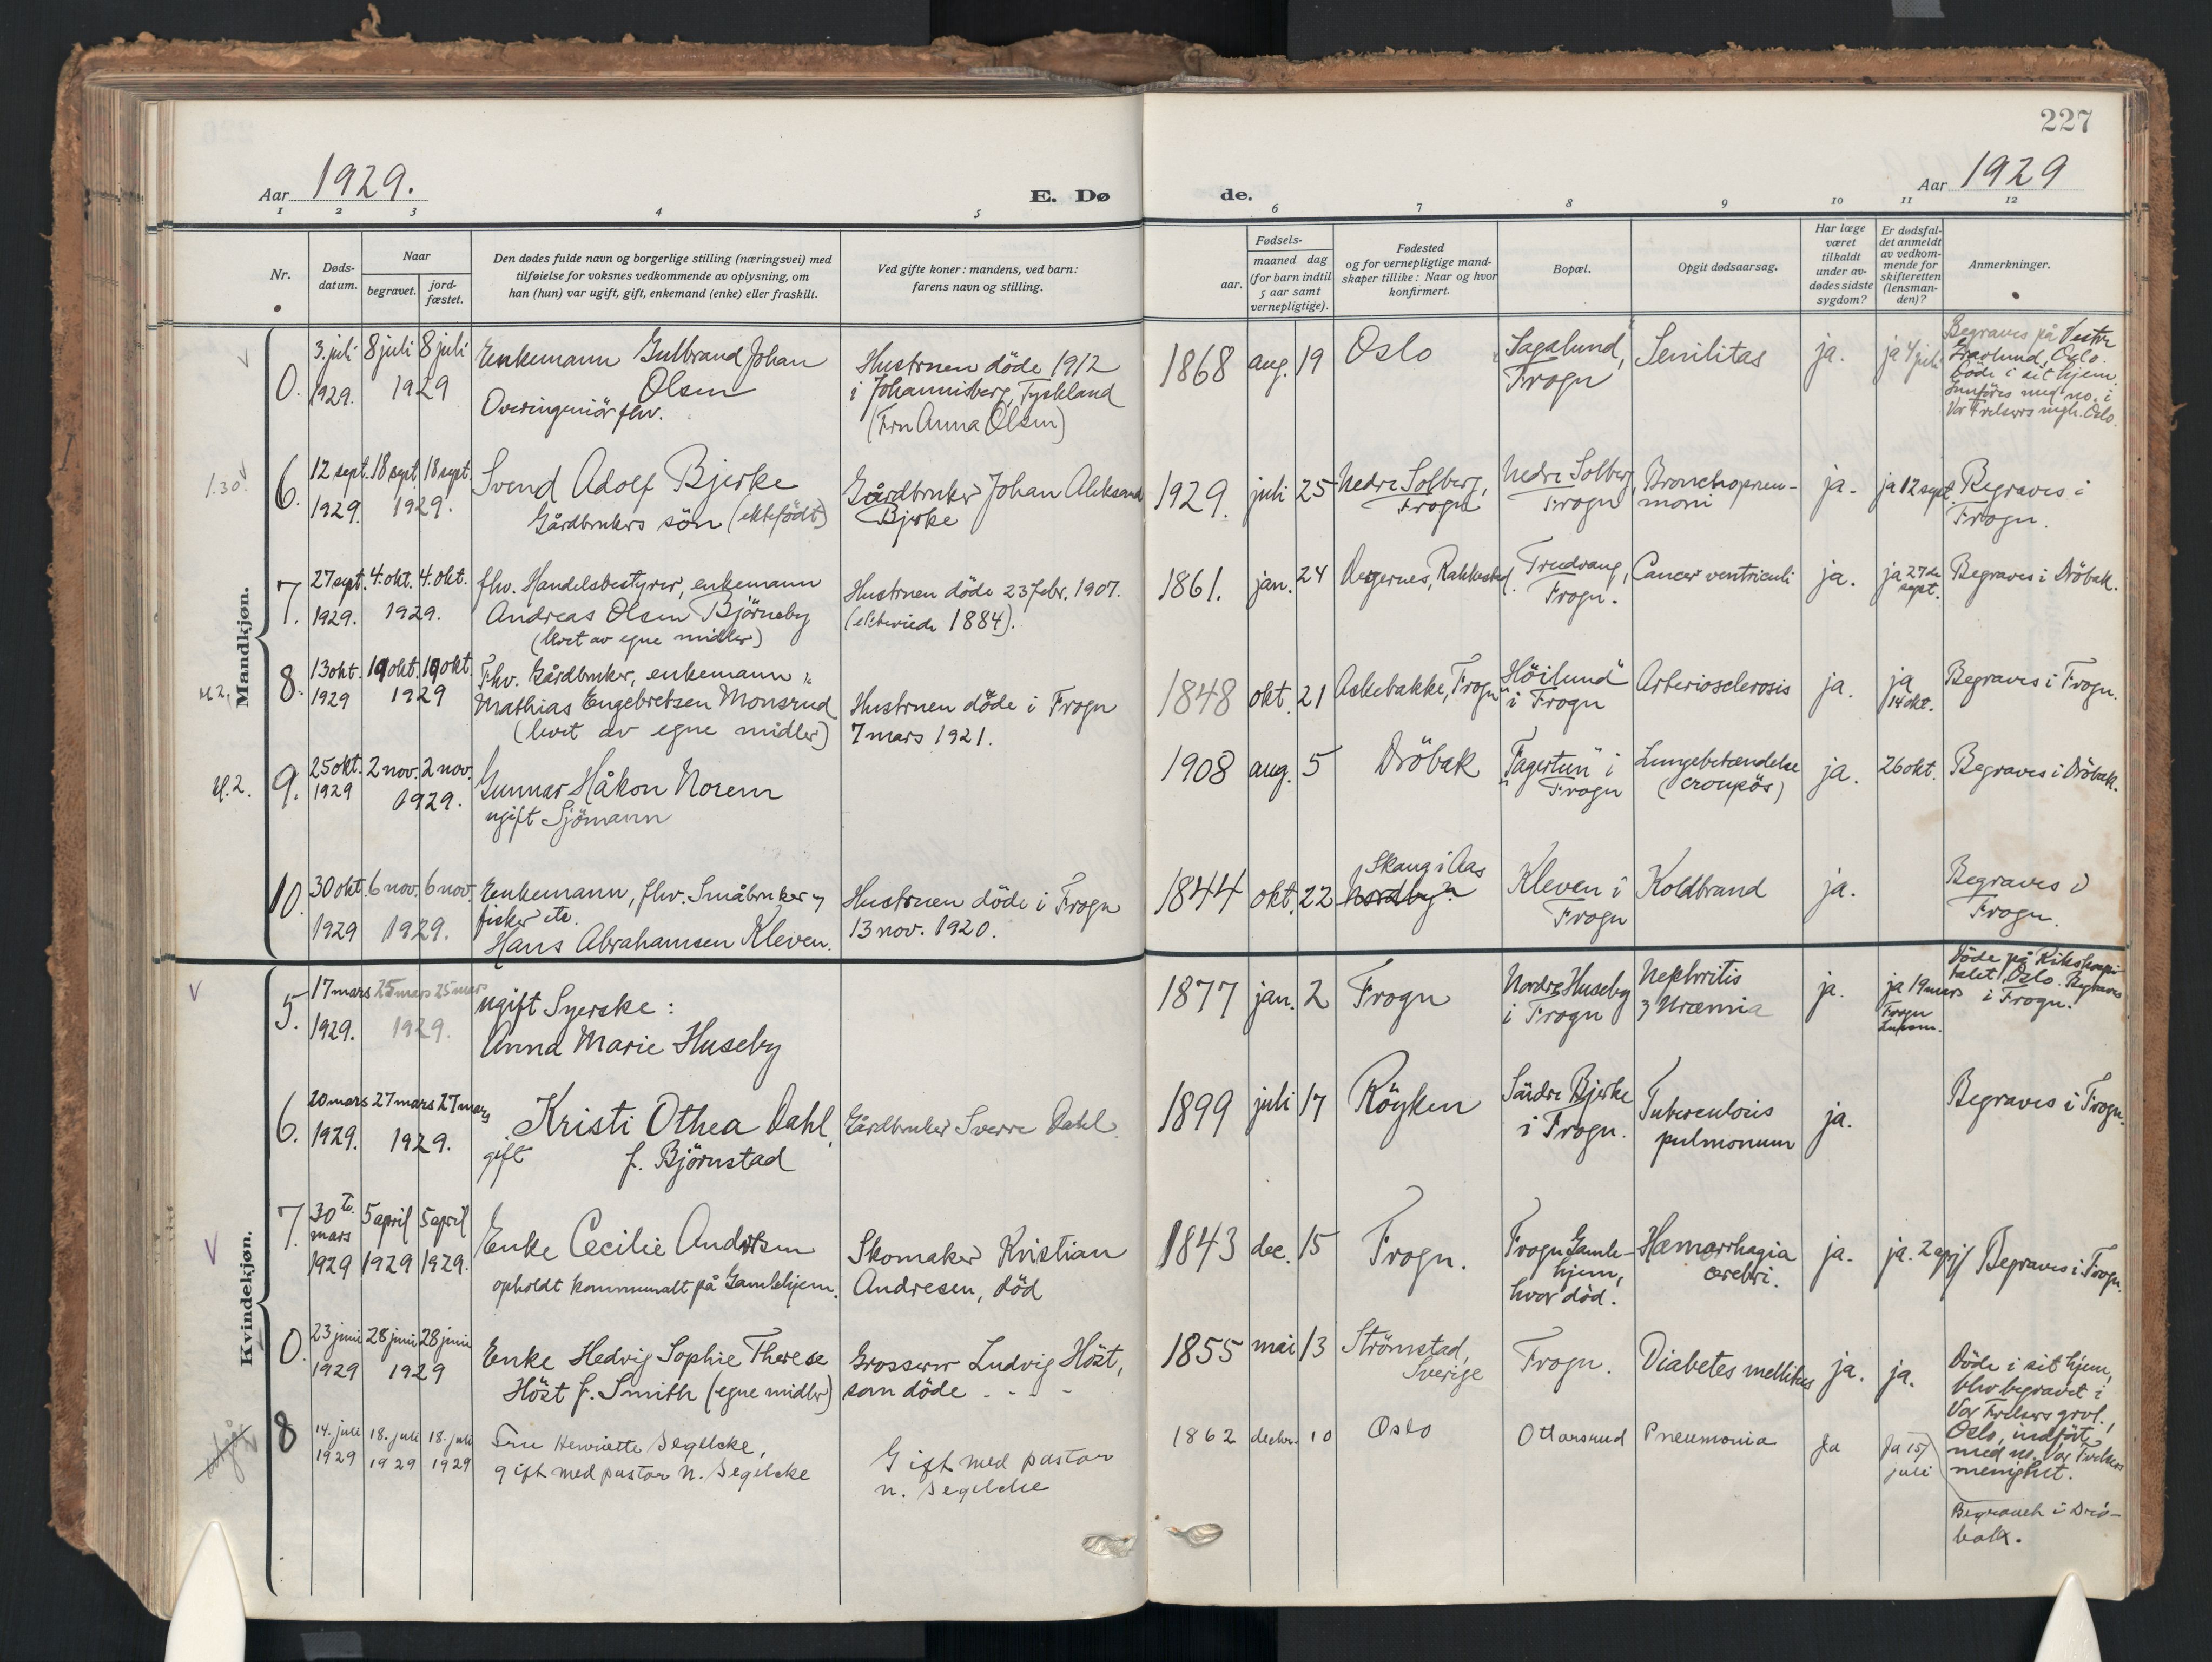 227
Aar 1929.
E. Dø
de.
Aar 1929
1 2 3 4 5 6 7 8 9 10 11 12
Nr.
Døds-
datum.
Naar
begravet.
jord-
fæstet.
Den dødes fulde navn og borgerlige stilling (næringsvei) med
tilføielse for voksnes vedkommende av oplysning, om
han (hun) var ugift, gift, enkemand (enke) eller fraskilt.
Ved gifte koner: mandens, ved barn:
farens navn og stilling.
Fødsels-
aar.
maaned dag
(for barn indtil
5 aar samt
vernepligtige).
Fødested
og for vernepligtige mand-
skaper tillike: Naar og hvor
konfirmert.
Bopæl.
Opgit dødsaarsag.
Har læge
været
tilkaldt
under av-
dødes sidste
sygdom?
Er dødsfal-
det anmeldt
av vedkom-
mende for
skifteretten
(lensman-
den)?
Anmerkninger.
Mandkjøn.
0.
3. juli
1929.
8 juli 8 juli
1929
Enkemann Gulbrand Johan
Olsen
Overingeniör fhv.
Hustruen döde 1912
i Johannisberg, Tyskland
(Fru Anna Olsen)
1868 aug. 19
Oslo
Sagalund,
Frogn
Senilitas
ja.
ja 4 juli
Begraves på Vestre
Gravlund, Oslo.
Döde i sit hjem.
Innföres med no. i
Vor Frelsers mgh. Oslo.
1.30.
6.
12 sept.
1929.
18 sept. 18 sept.
1929.
Svend Adolf Bjerke
Gårdbrukers sön (ektefödt)
Gårdbruker Johan Aleksand
Bjerke
1929. juli 25
Nedre Solberg,
Frogn
Nedre Solberg,
Frogn
Bronchopneu-
moni
ja.
ja 12 sept.
Begraves i
Frogn.
7.
27 sept.
1929.
4. okt. 4. okt.
1929.
fhv. Handelsbestyrer, enkemann
Andreas Olsen Björneby
(levet av egne midler)
Hustruen döde 23 febr. 1907.
(ekteviede 1884).
1861. jan. 24
Degernes, Rakkestad.
Trudvang,
Frogn.
Cancer ventriculi
ja.
ja 27de
sept.
Begraves i Dröbak.
8.
13 okt.
1929
19 okt. 19 okt.
1929
Fhv. Gårdbruker, enkemann
Mathias Engebretsen Monsrud
(levet av egne midler)
Hustruen döde i Frogn
7 mars 1921.
1848 okt. 21
Askebakke, Frogn
"Höilund"
i Frogn
Arteriosclerosis
ja.
ja
14 okt.
Begraves i Frogn.
9.
25 okt.
1929
2 nov. 2 nov.
1929.
Gunnar Håkon Norem
ugift Sjömann
1908 aug. 5
Dröbak
"Fagertun" i
Frogn
Lungebetændelse
(croupös)
ja.
26 okt.
Begraves i Dröbak.
10.
30 okt.
1929
6 nov. 6 nov.
1929.
Enkemann, fhv. Småbruker og
fisker etc.
Hans Abrahamsen Kleven.
Hustruen döde i Frogn
13 nov. 1920.
1844 okt. 22
Skaug i Aas
Nordby
Kleven i
Frogn
Koldbrand
ja.
Begraves i
Frogn.
Kvindekjøn.
5.
17 mars
1929.
25 mars 25 mars
1929.
ugift Syerske:
Anna Marie Huseby
1877 jan. 2
Frogn
Nordre Huseby
i Frogn
Nephritis
Uræmia
ja.
ja 19 mars
Frogn
Lensm.
Döde på Rikshospi-
talet, Oslo. Begraves
i Frogn.
6.
20 mars
1929.
27 mars 27 mars
1929.
Kristi Othea Dahl,
gift f. Björnstad
Gårdbruker Sverre Dahl.
1899 juli 17
Röyken
Söndre Bjerke
i Frogn.
Tuberculosis
pulmonum
ja.
Begraves i Frogn.
7.
30te
mars
1929
5 april 5 april
1929 1929.
Enke Cecilie Andresen
opholdt kommunalt på Gamlehjem.
Skomaker Kristian
Andresen, död
1843 dec. 15
Frogn.
Frogn Gamle-
hjem,
hvor död.
Hæmorrhagia
cerebri.
ja.
ja. 2 april
Begraves i Frogn.
0.
23 juni
1929
28 juni 28 juni
1929
Enke Hedvig Sophie Therese
Höst f. Smith (egne midler)
Grosserer Ludvig Höst,
som döde - - -
1855 mai 13
Strömstad,
Sverige
Frogn.
Diabetes mellitus
ja.
ja.
Döde i sit hjem,
blev begravet i
Vor Frelsers grvl.,
Oslo, indfört
med no. Vor Frelsers
menighet.
8
14. juli
1929
18. juli 18. juli
1929 1929
Fru Henriette Segelcke,
gift med pastor N. Segelcke
Gift med pastor
N. Segelcke
1862 decbr. 10
Oslo
Ottarsrud
Pneumonia
Ja
Ja 15/
juli
Begraveh i Drö-
bak.